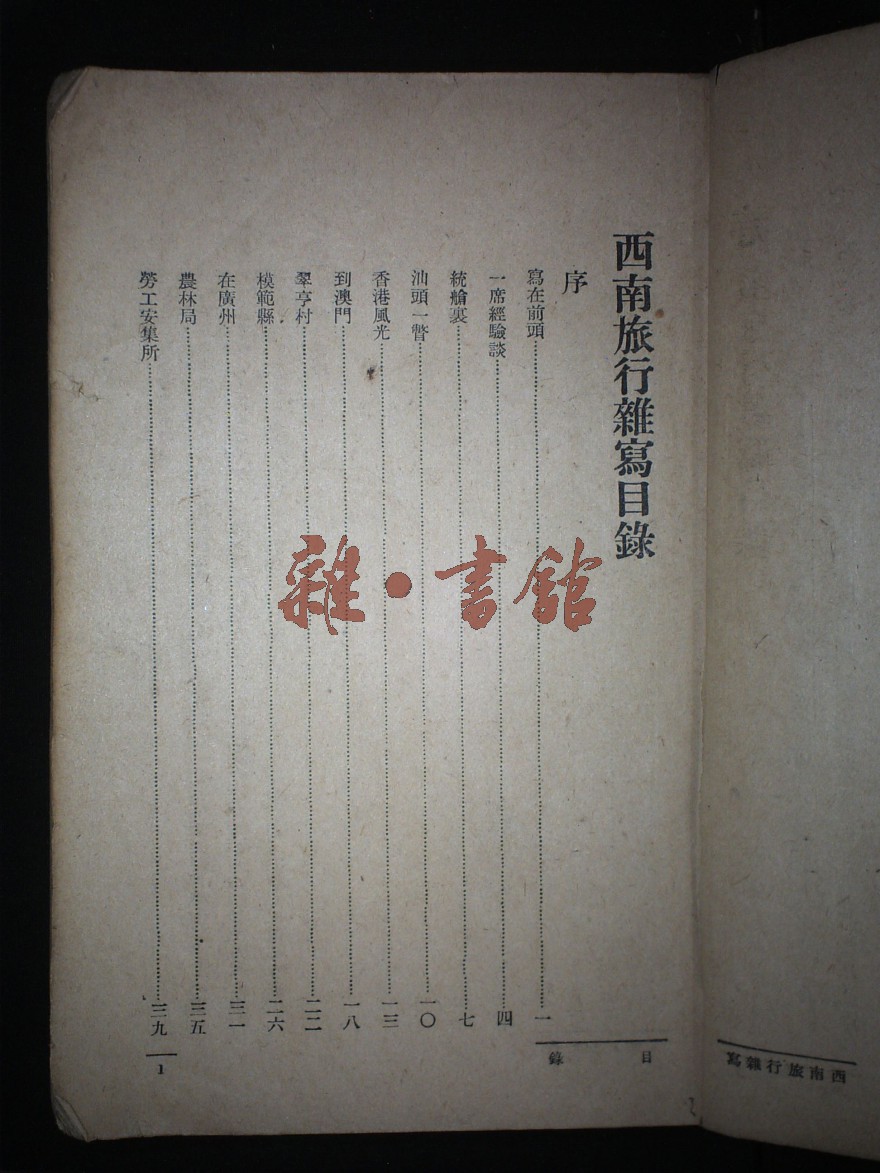 西南旅行雜寫目錄
序
寫在前頭……一
一席經驗談……四
統艙裏……七
汕頭一瞥……一〇
香港風光……一三
到澳門……一八
翠亨村……二二
模範縣……二六
在廣州……三一
農林局……三五
勞工安集所……三九
目錄
1
西南旅行雜寫
雜·書館